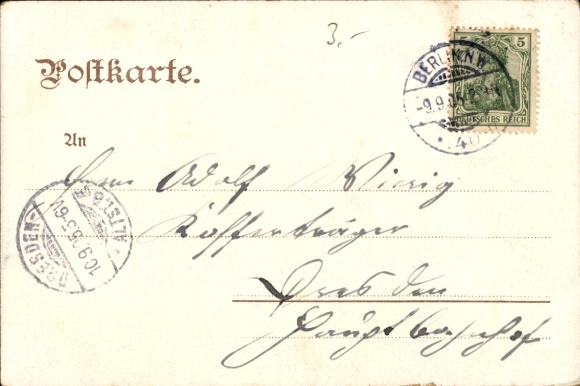 3.-
Postkarte.
5 5
BERLIN N.W.
-9.9.05
40
DEUTSCHES REICH
An
Herrn Adolf Vierig
Kofferträger
Dresden
Hauptbahnhof
DRESDEN-ALTST.
10.9.05.5-6V.